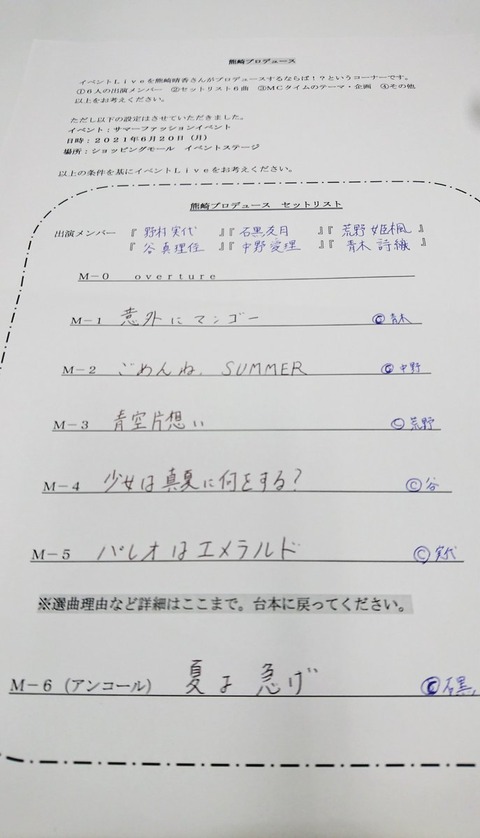 熊崎プロデュース
イベントLiveを熊崎晴香さんがプロデュースするならば！？というコーナーです。
①6人の出演メンバー ②セットリスト6曲 ③MCタイムのテーマ・企画 ④その他
以上をお考えください。
ただし以下の設定はさせていただきました。
イベント：サマーファッションイベント
日時：2021年6月20日（月）
場所：ショッピングモール イベントステージ
以上の条件を基にイベントLiveをお考えください。
熊崎プロデュース セットリスト
出演メンバー 『野村実代』『石黒友月』『荒野姫楓』
『谷真理佳』『中野愛理』『青木詩織』
M－0 overture
M－1 意外にマンゴー Ⓒ青木
M－2 ごめんね、SUMMER Ⓒ中野
M－3 青空片想い Ⓒ荒野
M－4 少女は真夏に何をする？ Ⓒ谷
M－5 パレオはエメラルド Ⓒ実代
※選曲理由など詳細はここまで。台本に戻ってください。
M－6（アンコール） 夏よ 急げ Ⓒ石黒